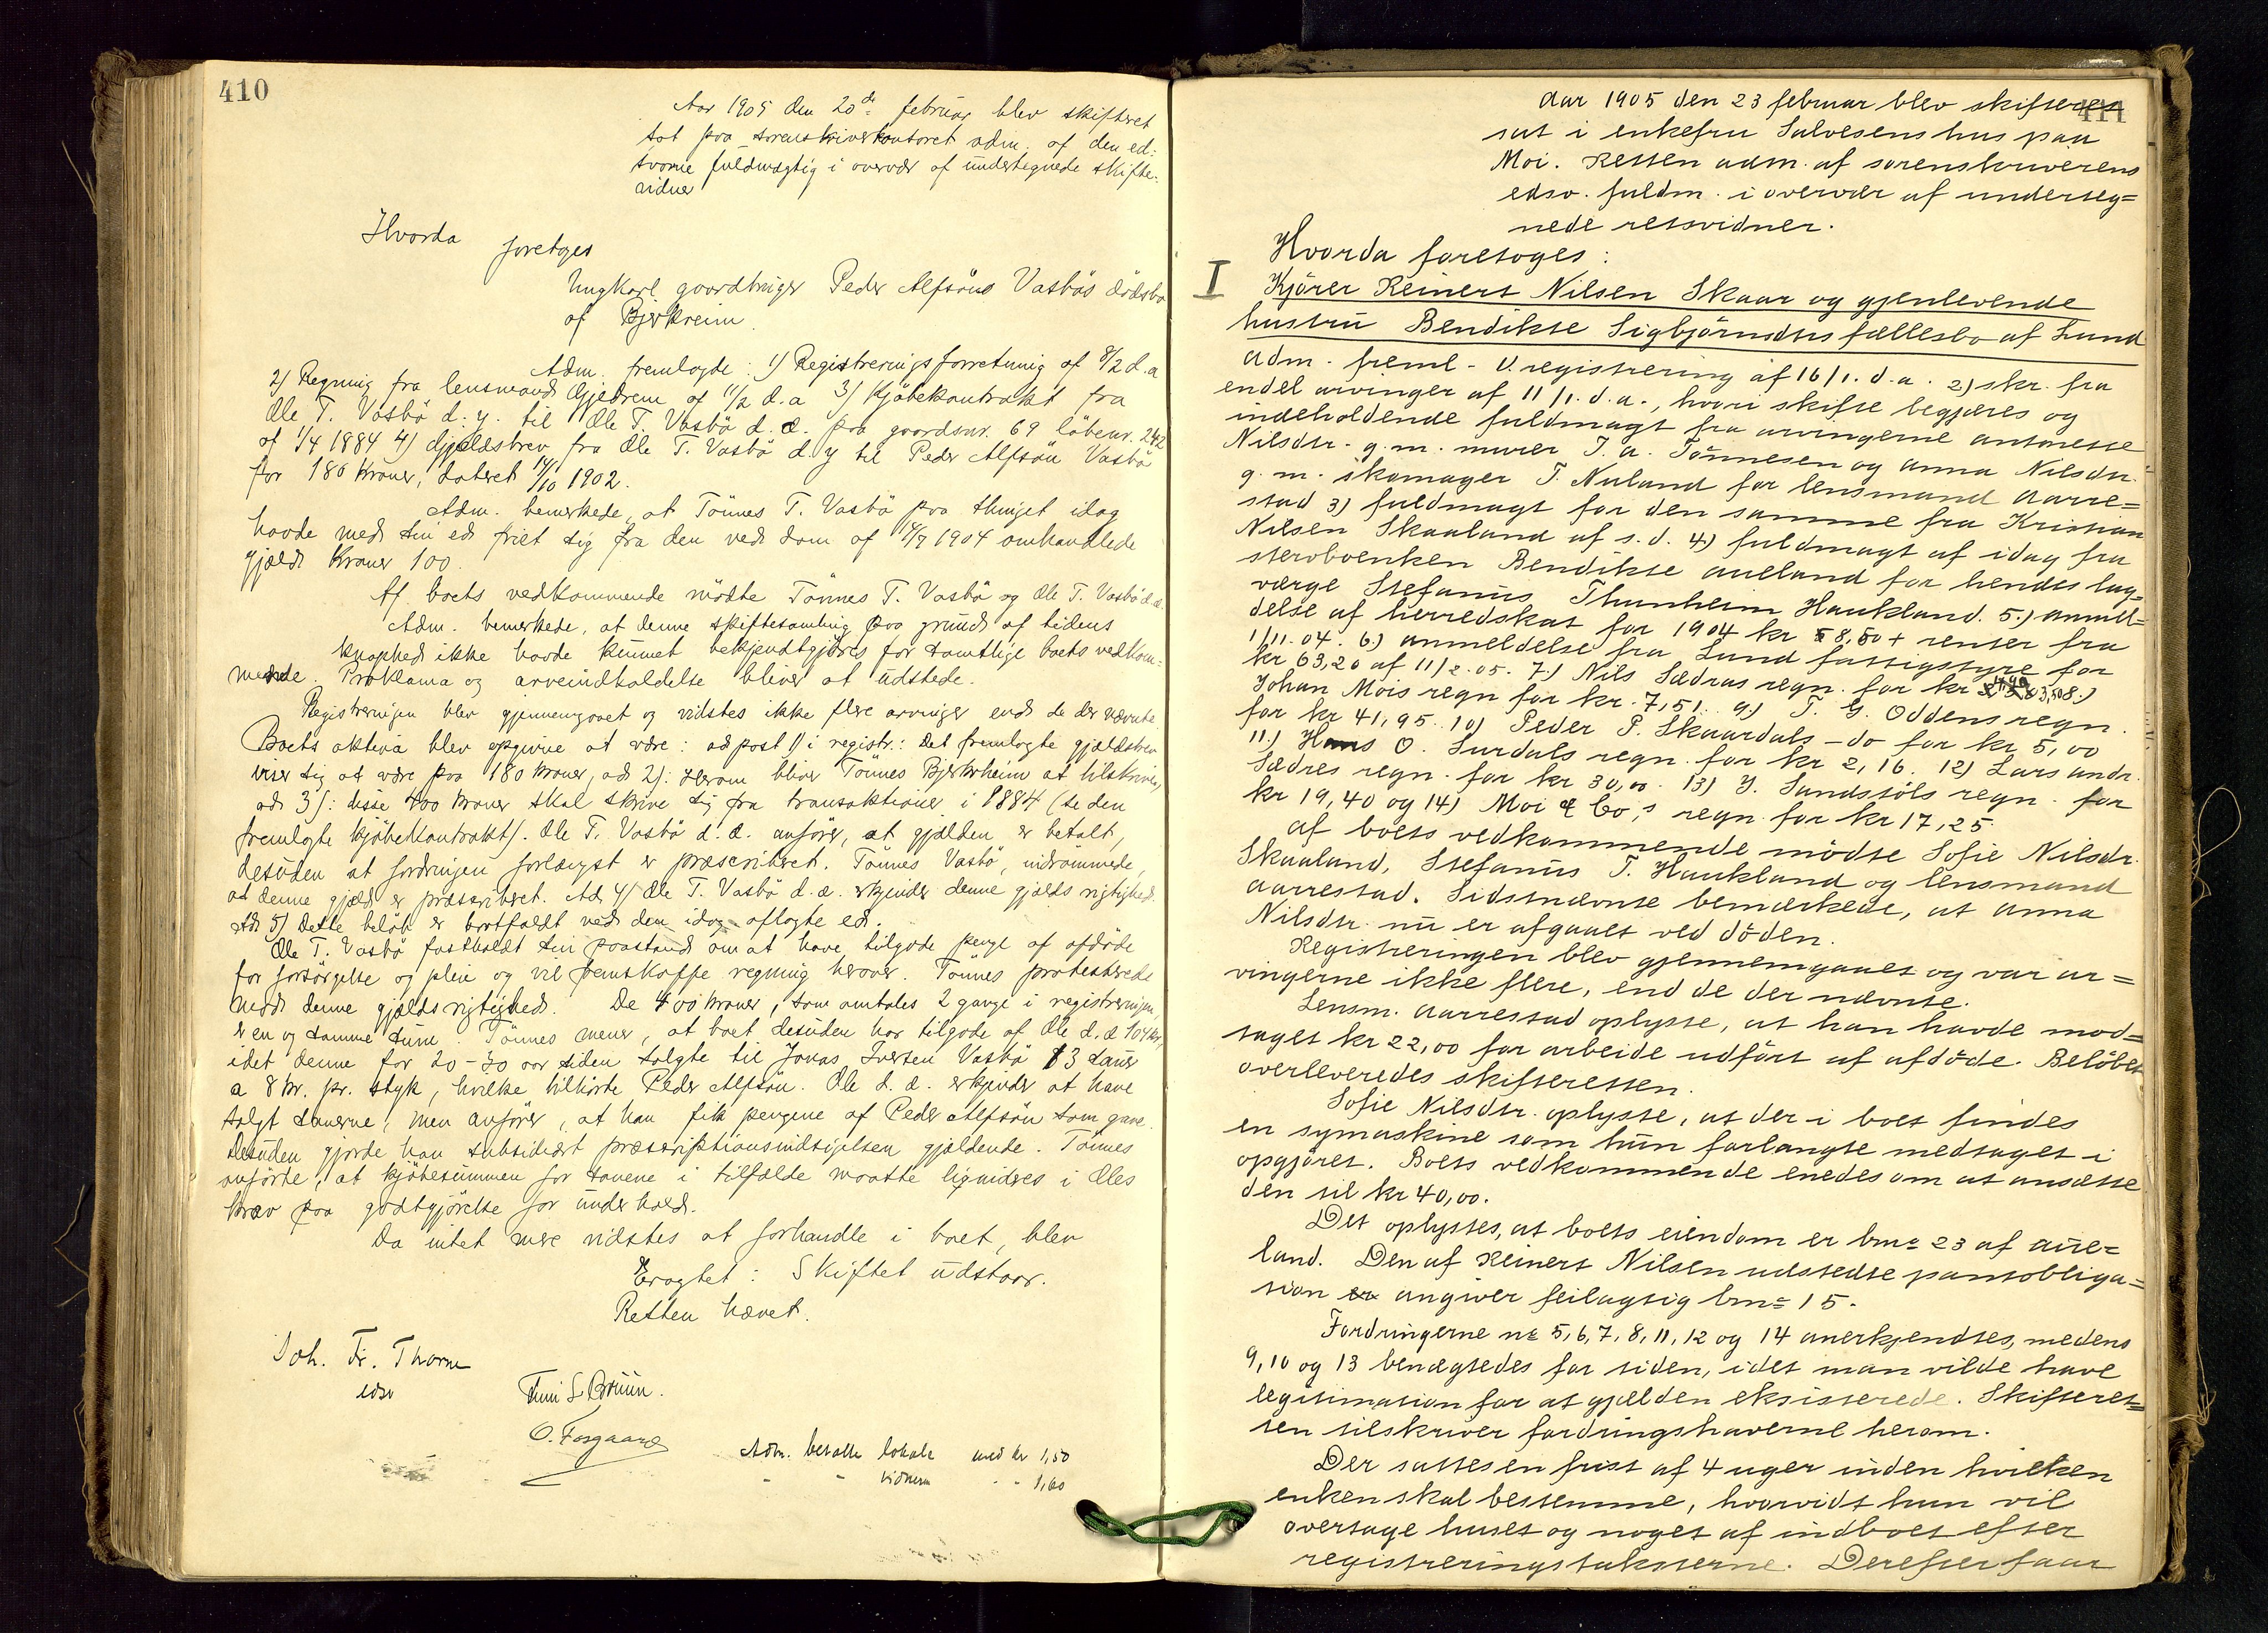 410
Aar 1905 den 20de februar blev skifteret
sat paa sorenskriverkontoret adm. af den ed-
svorne fuldmægtig i overvær af undertegnede skifte-
vidner
Hvorda foretoges
Ungkarl gaardbruger Peder Alfsøns Vasbøs dødsbo
af Bjerkreim.
Adm. fremlagde: 1) Registreringsforretning af 8/2 d.a
2) Regning fra lensmand Gjedrem af 11/2 d.a 3) Kjøbekontrakt fra
Ole T. Vasbø d. y. til Ole T. Vasbø d. æ. paa gaardsnr. 69 løbenr. 242
af 1/4 1884 4) Gjældsbrev fra Ole T. Vasbø d. y til Peder Alfsøn Vasbø
for 180 kroner, dateret 14/10 1902.
Adm. bemerkede, at Tønnes T. Vasbø paa thinget idag
havde med sin ed friet sig fra den ved dom af 4/7 1904 omhandlede
gjæld kroner 100.
Af boets vedkommende mødte Tønnes T. Vasbø og Ole T. Vasbø d.æ.
Adm. bemerkede, at denne skiftesamling paa grund af tidens
knaphed ikke havde kunnet bekjendtgjøres for samtlige boets vedkom-
mende. Proklama og arveindkaldelse bliver at udstede.
Registreringen blev gjennemgaaet og vidstes ikke flere arvinger end de der nævnte.
Boets aktiva blev opgivne at være: ad post 1) i registr.: Det fremlagte gjældsbrev
viser sig at være paa 180 kroner, ad 2): Herom bliver Tønnes Bjerkreim at tilskrive,
ad 3): disse 400 kroner skal skrive sig fra transaktioner i 1884 (se den
fremlagte kjøbekontrakt). Ole T. Vasbø d. æ. anfører, at gjælden er betalt,
desuden at fordringen forlængst er præscriberet. Tønnes Vasbø indrømmede,
at denne gjæld er præscriberet. Ad 4) Ole T. Vasbø d. æ. erkjender denne gjælds rigtighed.
Ad 5) Dette beløb er bortfaldt ved den idag aflagte ed.
Ole T. Vasbø fastholdt sin paastand om at have tilgode penge af afdøde
for forsørgelse og pleie og vil fremskaffe regning herover. Tønnes protesterede
mod denne gjælds rigtighed. De 400 kroner, som omtales 2 gange i registreringen,
er en og samme sum. Tønnes mener, at boet desuden har tilgode af Ole d. æ 104 kr,
idet denne for 20-30 aar siden solgte til Jonas Iversen Vasbø 13 sauer
a 8 kr. pr. styk, hvilke tilhørte Peder Alfsøn. Ole d. æ. erkjender at have
solgt sauerne, men anfører, at han fik pengene af Peder Alfsøn som gave.
Desuden gjorde han subsidiært præscriptionsindsigelsen gjældende. Tønnes
anførte, at kjøbesummen for sauene i tilfælde maatte ligvideres i Oles
krav paa godtgjørelse for underhold.
Da intet mere vidstes at forhandle i boet, blev
Eragtet: Skiftet udstaar.
Retten hævet.
Joh. Fr. Thorne
edsv
S. Bruun.
O. Fosgaard
Adm. betalte lokale med kr 1,50
" " vidnerne " " 1,60
411
Aar 1905 den 23 februar blev skifteret
sat i enkefru Salvesens hus paa
Moi. Retten adm. af sorenskriverens
edsv. fuldm. i overvær af underteg=
nede retsvidner.
Hvorda foretoges:
I Kjører Reinert Nilsen Skaar og gjenlevende
hustru Bendikte Sigbjørnsdtrs fællesbo af Lund
Adm. freml. 1) registrering af 16/1. d. a. 2) skr. fra
endel arvinger af 11/1. d. a., hvori skifte begjæres og
indeholdende fuldmagt fra arvingerne Antonette
Nilsdtr. g. m. murer T. A. Tønnesen og Anna Nilsdtr.
g. m. skomager T. Nuland for lensmand Aarre=
stad 3) fuldmagt for den samme fra Kristian
Nilsen Skaaland af s. d. 4) fuldmagt af idag fra
stervboenken Bendikte Aueland for hendes lag=
værge Stefanus Thunheim Haukland. 5.) anmel=
delse af herredskat for 1904 kr 8,50 + renter fra
1/11.04. 6.) anmeldelse fra Lund fattigstyre for
kr 63,20 af 11/2.05. 7.) Nils Sædras regn. for kr 8.)
Johan Mois regn for kr. 7,51. 9.) T. G. Oddens regn.
for kr 41,95. 10) Peder P. Skaardals - do for kr 5,00
11.) Hans O. Surdals regn. for kr 2,16. 12) Lars Andr.
Sædres regn. for kr 30,00. 13) Y. Sandstøls regn. for
kr 19,40 og 14) Moi & Co,s regn. for kr 17,25.
Af boets vedkommende mødte Sofie Nilsdtr.
Skaaland, Stefanus T. Haukland og lensmand
Aarrestad. Sidstnævnte bemærkede, at Anna
Nilsdtr. nu er afgaaet ved døden.
Registreringen blev gjennemgaaet og var ar=
vingerne ikke flere, end de der nævnte.
Lensm. Aarrestad oplyste, at han havde mod=
taget kr 22,00 for arbeide udført af afdøde. Beløbet
overleveredes skifteretten.
Sofie Nilsdtr. oplyste, at der i boet findes
en symaskine som hun forlangte medtaget i
opgjøret. Boets vedkommende enedes om at ansætte
den til kr 40,00.
Det oplystes, at boets eiendom er bno 23 af Aue=
land. Den af Reinert Nilsen udstedte pantobliga=
tion er angiver feilagtig bno 15.
Fordringerne no 5, 6, 7, 8, 11, 12 og 14 anerkjendtes, medens
9, 10 og 13 benægtedes for tiden, idet man vilde have
legitimation for at gjælden eksisterede. Skifteret=
ten tilskriver fordringshaverne herom.
Der sattes en frist af 4 uger inden hvilken
enken skal bestemme, hvorvidt hun vil
overtage huset og noget af indboet efter
registreringstaksterne. Derefter faar